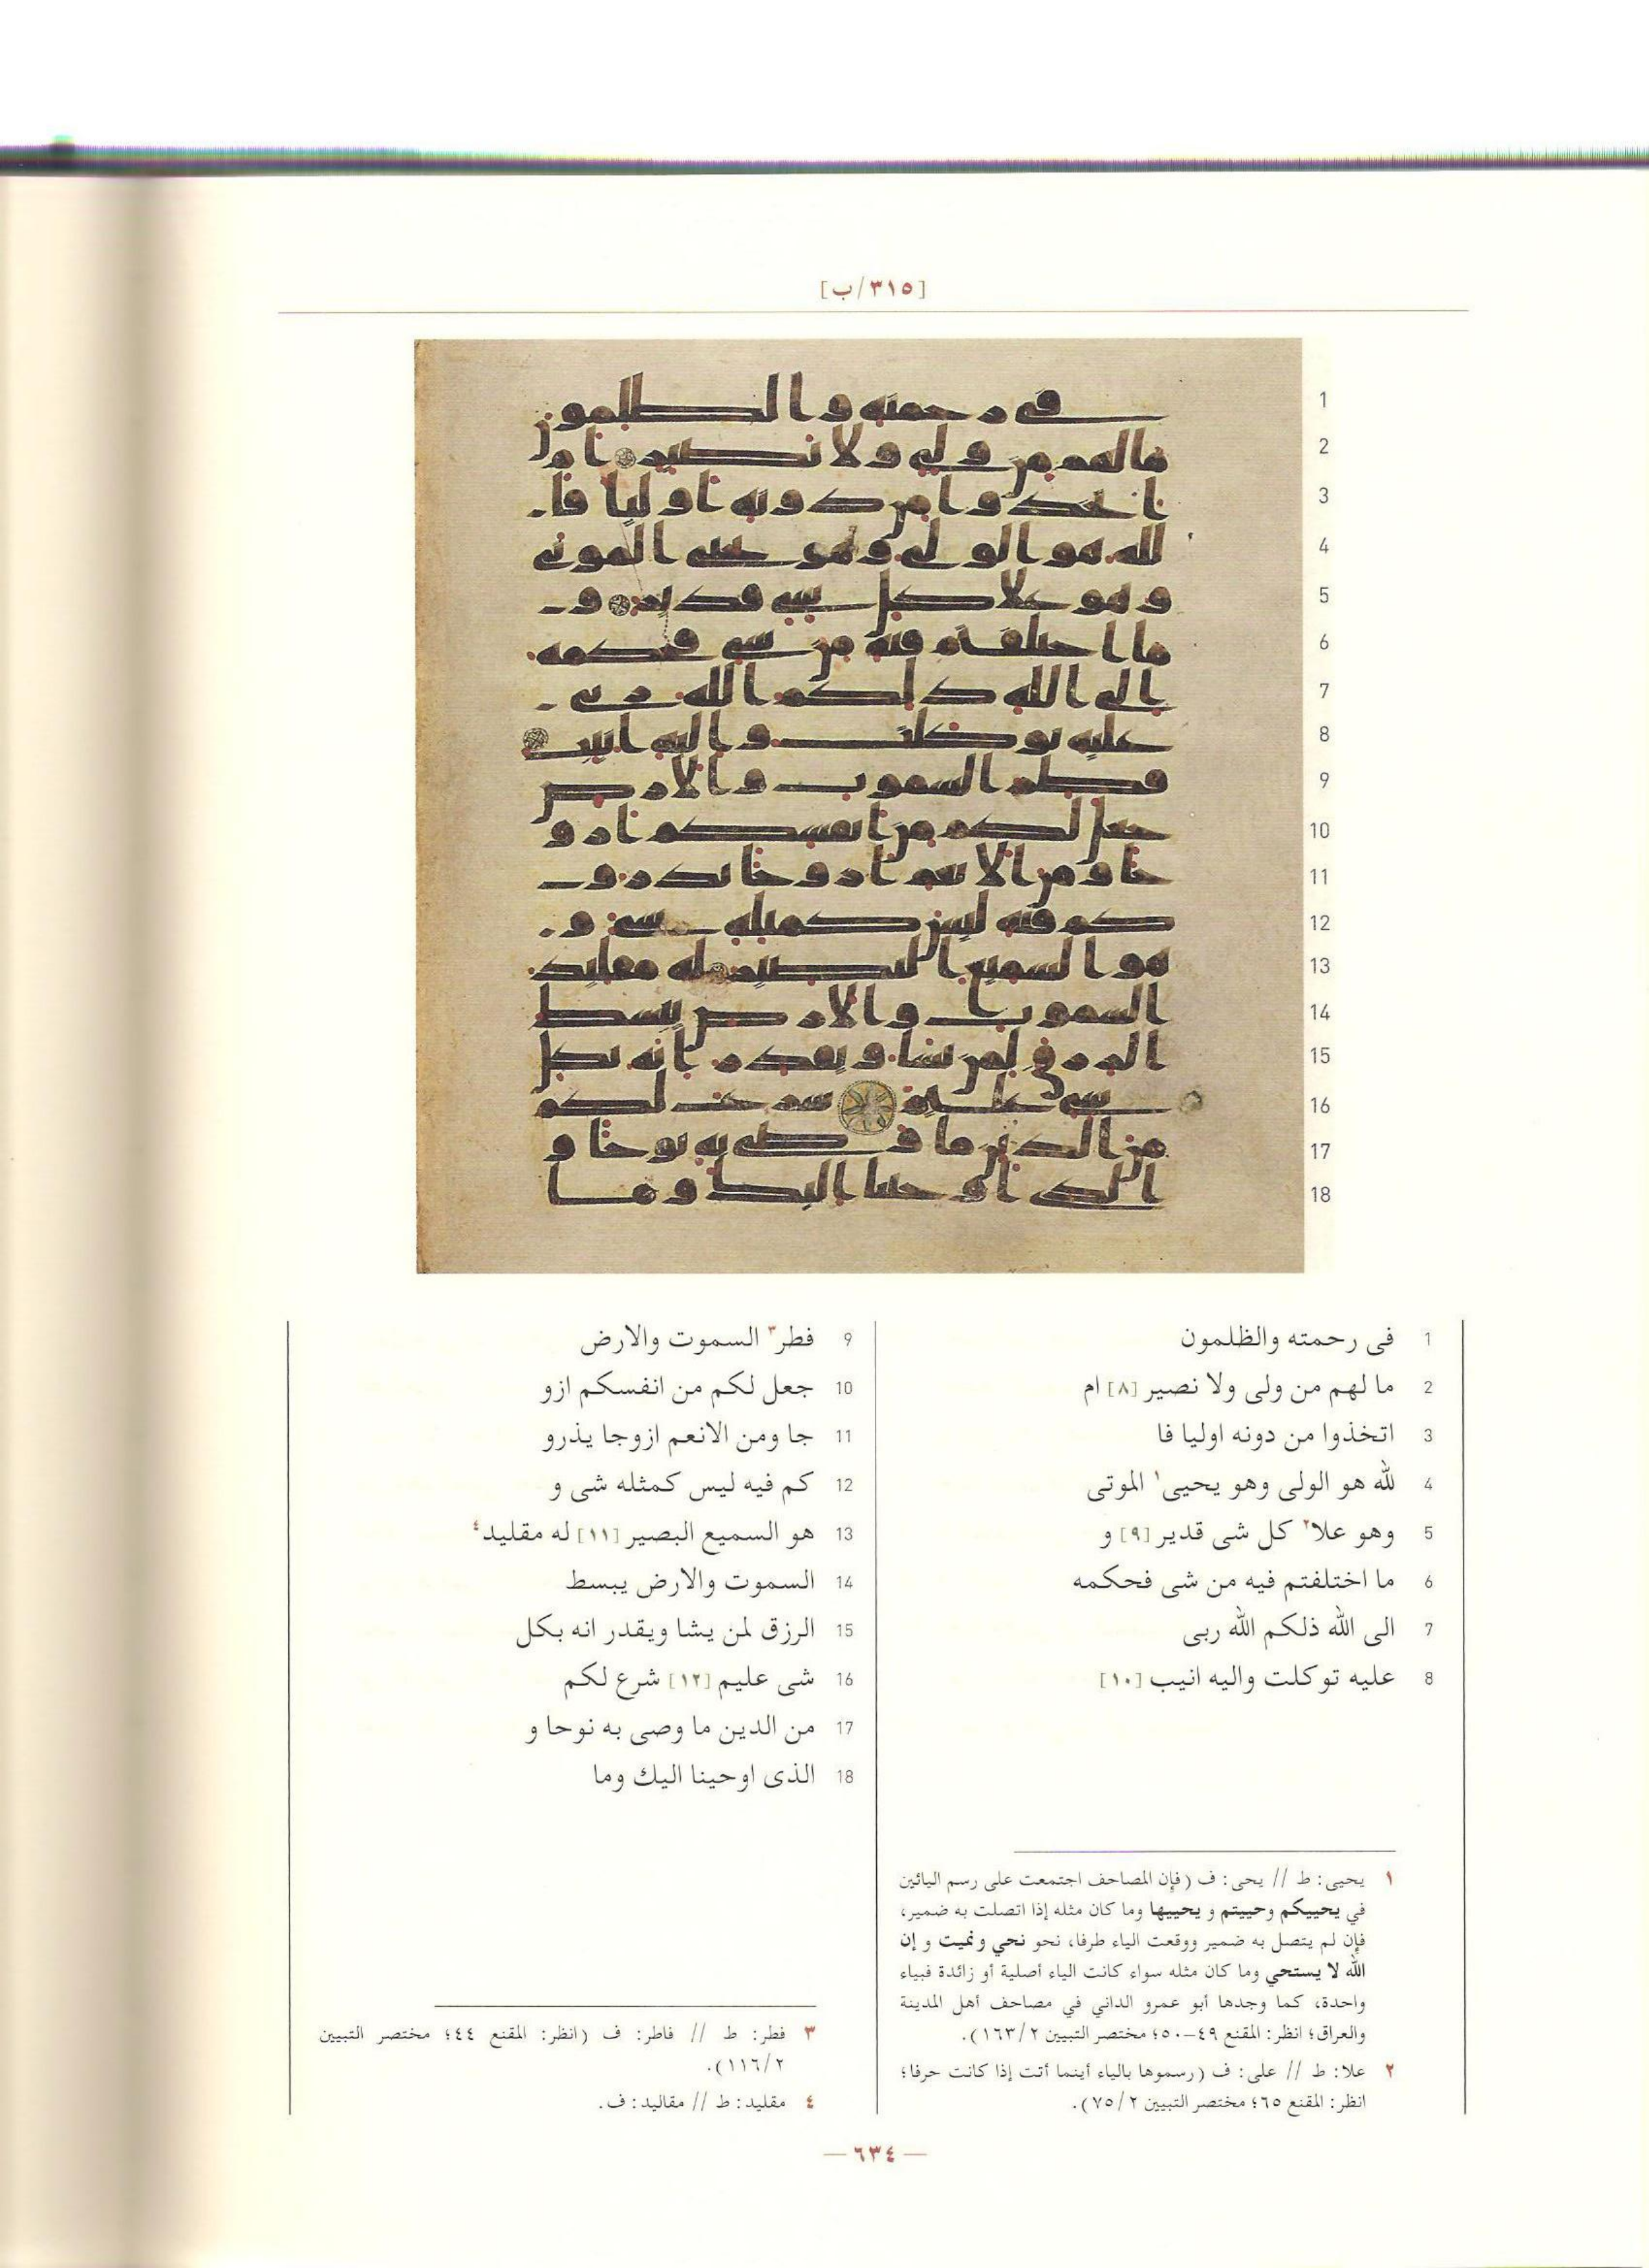 [٣١٥/ب]
1 فى رحمته والظلمون
2 ما لهم من ولى ولا نصير [٨] ام
3 اتخذوا من دونه اوليا فا
4 لله هو الولى وهو يحيى١ الموتى
5 وهو علا٢ كل شى قدير [٩] و
6 ما اختلفتم فيه من شى فحكمه
7 الى الله ذلكم الله ربى
8 عليه توكلت واليه انيب [١٠]
9 فطر٣ السموت والارض
10 جعل لكم من انفسكم ازو
11 جا ومن الانعم ازوجا يذرو
12 كم فيه ليس كمثله شى و
13 هو السميع البصير [١١] له مقليد٤
14 السموت والارض يبسط
15 الرزق لمن يشا ويقدر انه بكل
16 شى عليم [١٢] شرع لكم
17 من الدين ما وصى به نوحا و
18 الذى اوحينا اليك وما
١ يحيى: ط // يحى: ف (فإن المصاحف اجتمعت على رسم اليائين
في يحييكم وحييتم و يحييها وما كان مثله إذا اتصلت به ضمير،
فإن لم يتصل به ضمير ووقعت الياء طرفا، نحو نحي ونميت و إن
الله لا يستحي وما كان مثله سواء كانت الياء أصلية أو زائدة فبياء
واحدة، كما وجدها أبو عمرو الداني في مصاحف أهل المدينة
والعراق؛ انظر: المقنع ٤٩-٥٠؛ مختصر التبيين ١٦٣/٢).
٢ علا: ط // على: ف (رسموها بالياء أينما أتت إذا كانت حرفا؛
انظر: المقنع ٦٥؛ مختصر التبيين ٧٥/٢).
٣ فطر: ط // فاطر: ف (انظر: المقنع ٤٤؛ مختصر التبيين
١١٦/٢).
٤ مقليد: ط // مقاليد: ف.
— ٦٣٤ —